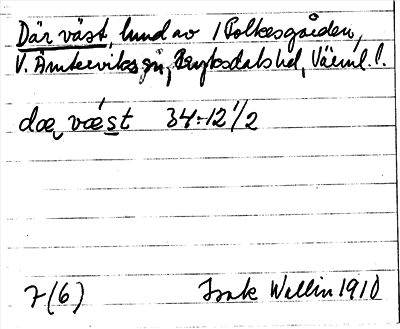 Där väst, lund av 1 Folkesgården,
V. Ämterviks sn, Fryksdals hd, Värml. l.
dæ, væst 34:12 1/2
7(6) Isak Wallin 1910